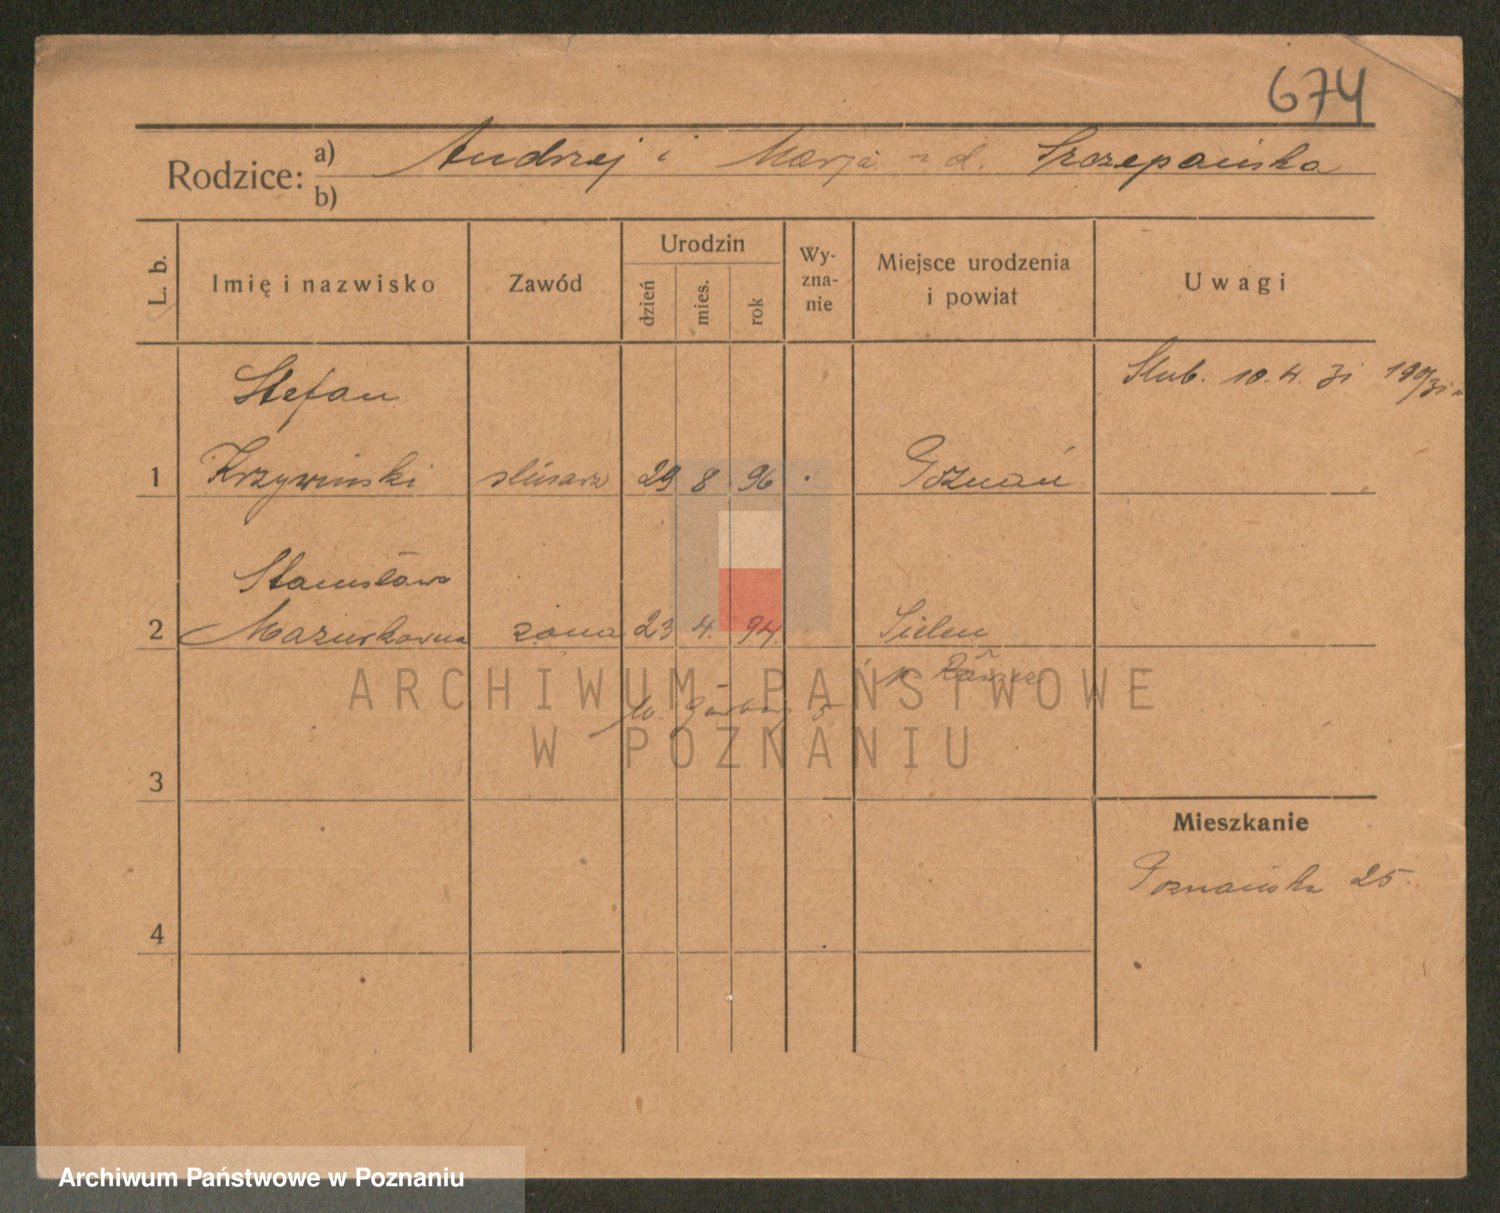 674
Rodzice: a) Andrzej i Marja z d. Szczepańska
b)
L. b.
Imię i nazwisko
Zawód
Urodzin
dzień
mies.
rok
Wy-
zna-
nie
Miejsce urodzenia
i powiat
Uwagi
Stefan
Ślub. 10. 4. 31
1 Krzywiński ślusarz 29 8 96 Poznań
Stanisława
2 Mazurkówna żona 23 4. 94. Sielen
ARCHIWUM PAŃSTWOWE
W POZNANIU
3
Mieszkanie
Poznańska 25.
4
Archiwum Państwowe w Poznaniu